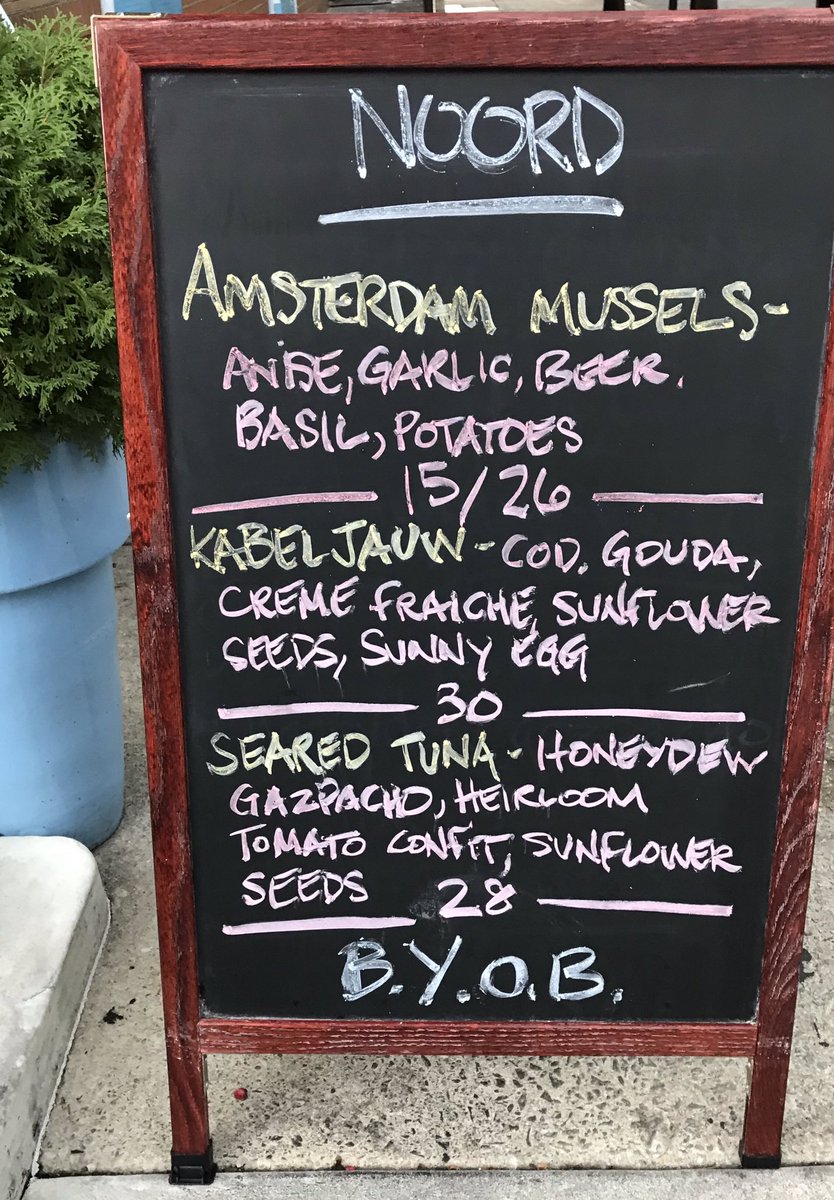 NOORD
AMSTERDAM MUSSELS-
ANISE, GARLIC, BEER,
BASIL, POTATOES
15/26
KABELJAUW - COD, GOUDA,
CREME FRAICHE, SUNFLOWER
SEEDS, SUNNY EGG
30
SEARED TUNA - HONEYDEW
GAZPACHO, HEIRLOOM
TOMATO CONFIT, SUNFLOWER
SEEDS 28
B.Y.O.B.